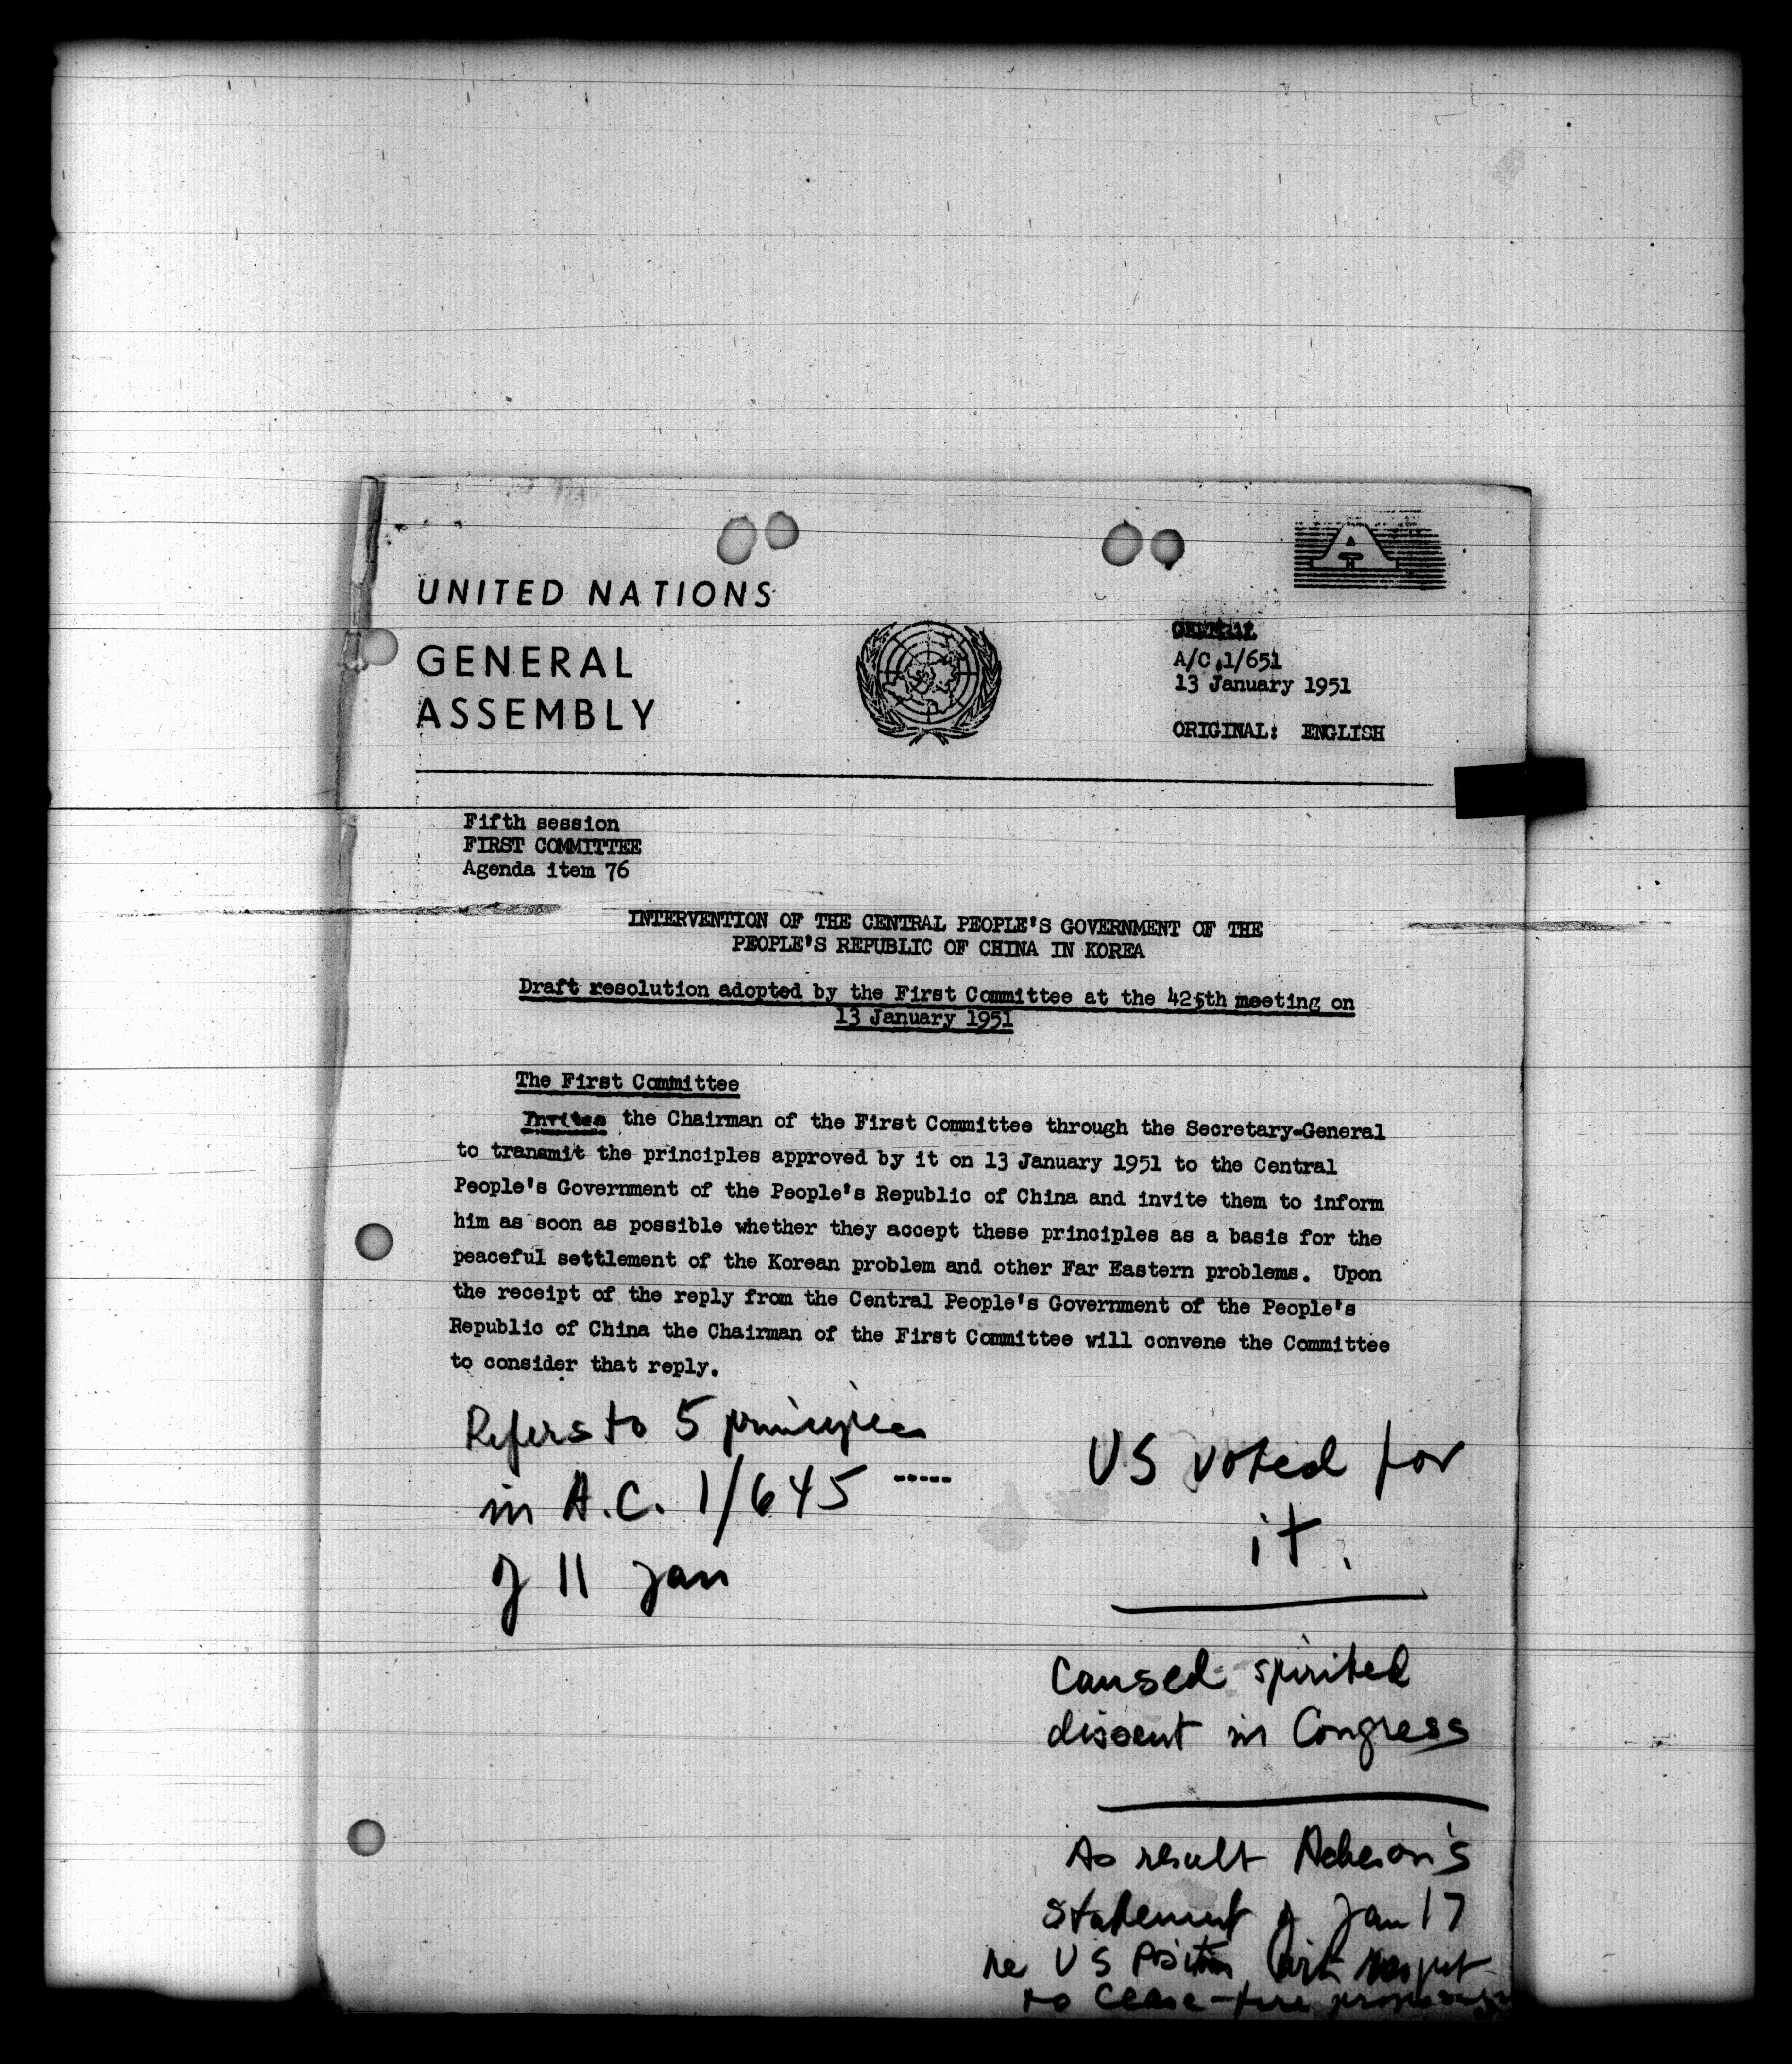 UNITED NATIONS
GENERAL
ASSEMBLY
A
GENERAL
A/C.1/651
13 January 1951
ORIGINAL: ENGLISH
Fifth session
FIRST COMMITTEE
Agenda item 76
INTERVENTION OF THE CENTRAL PEOPLE'S GOVERNMENT OF THE
PEOPLE'S REPUBLIC OF CHINA IN KOREA
Draft resolution adopted by the First Committee at the 425th meeting on
13 January 1951
The First Committee
Invites the Chairman of the First Committee through the Secretary-General
to transmit the principles approved by it on 13 January 1951 to the Central
People's Government of the People's Republic of China and invite them to inform
him as soon as possible whether they accept these principles as a basis for the
peaceful settlement of the Korean problem and other Far Eastern problems. Upon
the receipt of the reply from the Central People's Government of the People's
Republic of China the Chairman of the First Committee will convene the Committee
to consider that reply.
Refers to 5 principles
in A.C. 1/645 -----
of 11 Jan
US voted for
it.
Caused spirited
dissent in Congress
As result Acheson's
statement of Jan 17
re US Position with respect
to cease-fire proposals